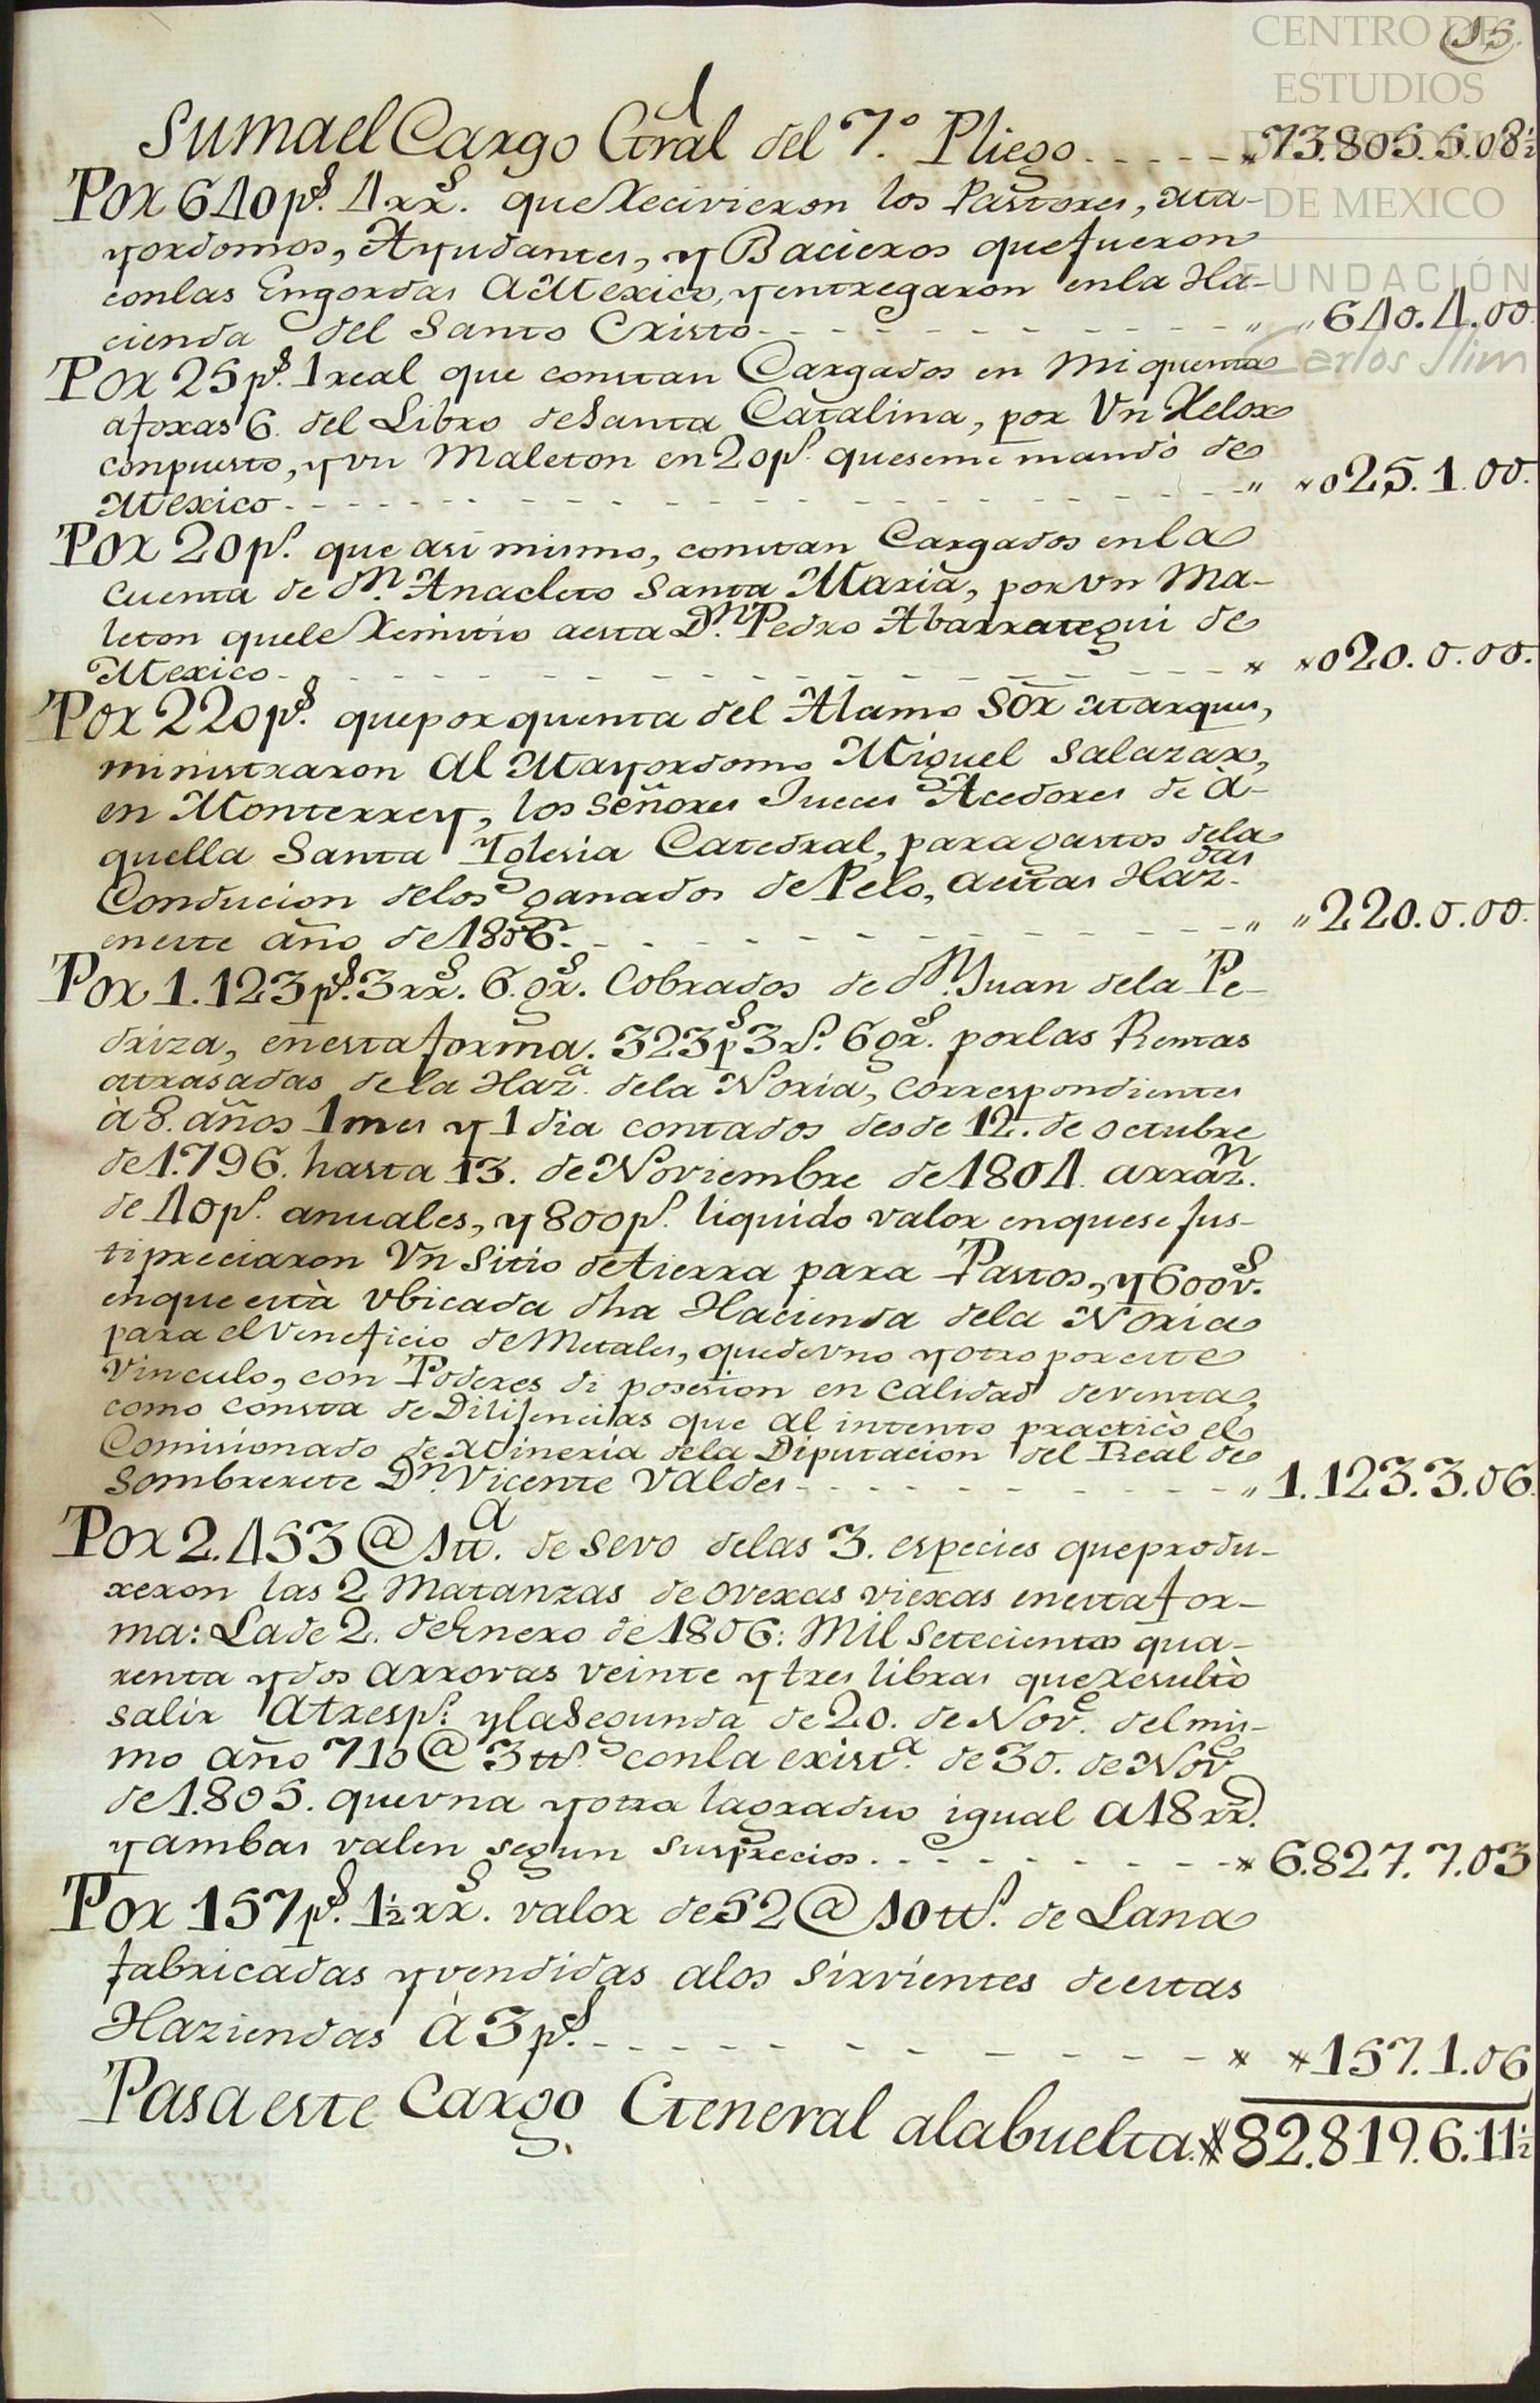 15.
CENTRO DE
ESTUDIOS
DE MEXICO
FUNDACIÓN
Carlos Slim
Suma el Cargo Gral del 7.º Pliego - - - - - „ 73.805.5.08½
Por 640 p.s 4 rr.s que recivieron los Pastores, Ma-
yordomos, Ayudantes, y Bacieros que fueron
con las Engordas a Mexico, y entregaron en la Ha-
cienda del Santo Cristo - - - - - - - - - - „ „ 640.4.00
Por 25 p.s 1 real que constan Cargados en mi quenta
a foxas 6. del Libro de Santa Catalina, por Vn Relox
conpuesto, y vn Maleton en 20 p.s que se me mandò de
Mexico - - - - - - - - - - - - - - - - - - „ „ 025.1.00.
Por 20 p.s que asi mismo, constan Cargados en la
Cuenta de d.n Anacleto Santa Maria, por Vn Ma-
leton que le remitio a esta D.n Pedro Abarrategui de
Mexico - - - - - - - - - - - - - - - - - - „ „ 020.0.00.
Por 220 p.s que por quenta del Alamo Sor Marques,
ministraron al Mayordomo Miguel Salazar,
en Monterrey, los Señores Jueces Acedores de a-
quella Santa Yglesia Catedral, para gastos de la
Conducion de los ganados de Pelo, a estas Haz.das
en este año de 1806. - - - - - - - - - - - - „ „ 220.0.00.
Por 1.123 p.s 3 rr.s 6. gr.s Cobrados de d.n Juan de la Pe-
driza, en esta forma. 323 p.s 3 r.s 6 gr.s por las Rentas
atrasadas de la Haz.a de la Noria, correspondientes
à 8. años 1 mes y 1 dia contados desde 12. de octubre
de 1.796. hasta 13. de Noviembre de 1804. arraz.n
de 40 p.s anuales, y 800 p.s liquido valor en que se jus-
tipreciaron Vn Sitio de tierra para Pastos, y 600 v.s
en que està vbicada dha Hacienda de la Noria
para el Veneficio de Metales, que de vno y otro por este
Vinculo, con Poderes di posesion en calidad de venta,
como consta de Dilijencias que al intento practicò el
Comisionado de Mineria de la Diputacion del Real de
Sombrerete D.n Vicente Valdes - - - - - - - - - „ 1.123.3.06.
Por 2.453 @ 1 tt.a de sevo de las 3. especies que produ-
xeron las 2 Matanzas de ovexas viexas en esta for-
ma: La de 2. de Enero de 1806: Mil Setecientas qua-
renta y dos arrovas veinte y tres libras que resultò
salir a tres p.s y la Segunda de 20. de Nov.e del mis-
mo año 710 @ 3 tt.s con la exist.a de 30. de Nov.e
de 1.805. que vna y otra la graduo igual a 18 rr.
y ambas valen segun sus precios. - - - - - - - „ 6.827.7.03
Por 157 p.s 1½ rr.s valor de 52 @ 10 tt.s de Lana
fabricadas y vendidas a los sirvientes de estas
Haziendas à 3 p.s - - - - - - - - - - - - „ „ 157.1.06
Pasa este Cargo General a la buelta. $ 82.819.6.11½